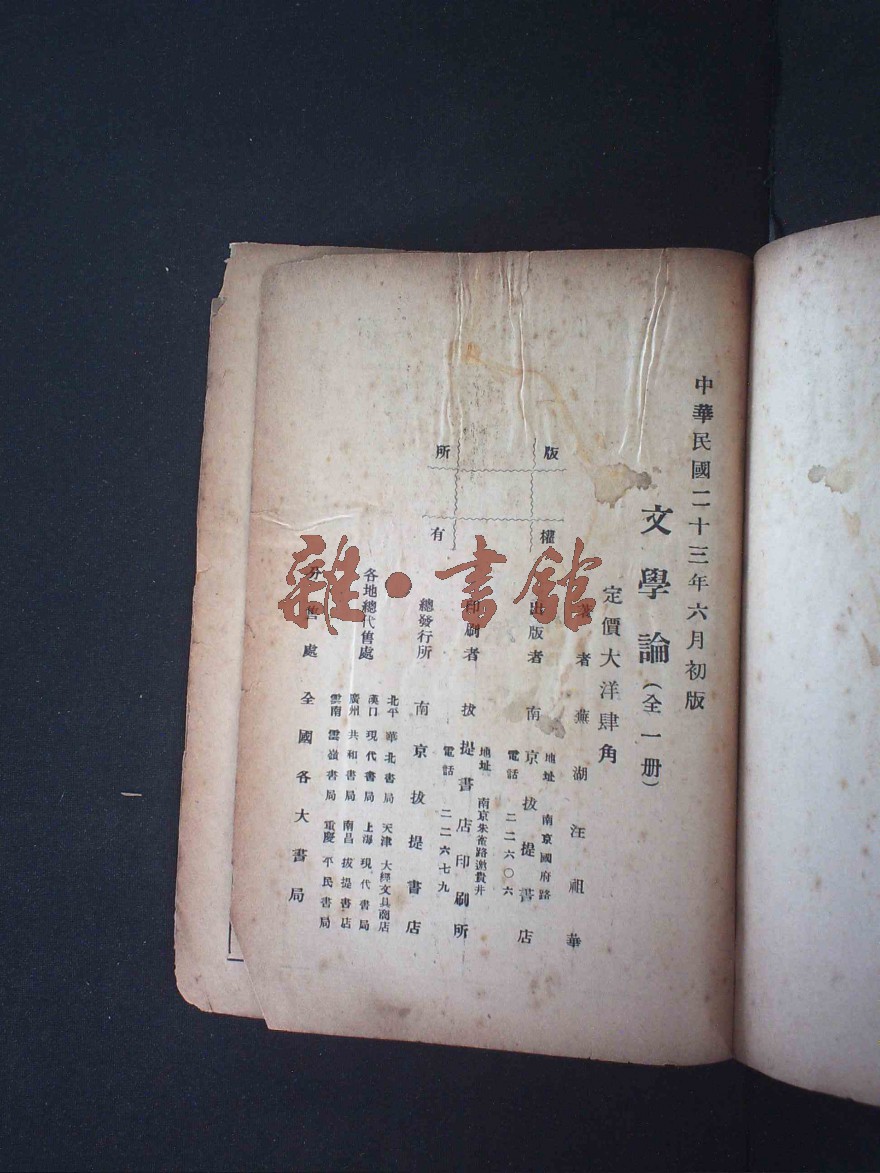 中華民國二十三年六月初版
文學論（全一册）
定價大洋肆角
版權所有
著者 蕪湖汪祖華
出版者 南京拔提書店
地址 南京國府路
電話 二二六〇六
印刷者 拔提書店印刷所
地址 南京朱雀路邀貴井
電話 二二六七九
總發行所 南京拔提書店
各地總代售處
北平 華北書局 天津 大經文具商店
漢口 現代書局 上海 現代書局
廣州 共和書局 南昌 拔提書店
雲南 雲嶺書局 重慶 平民書局
分售處 全國各大書局
雜·書館